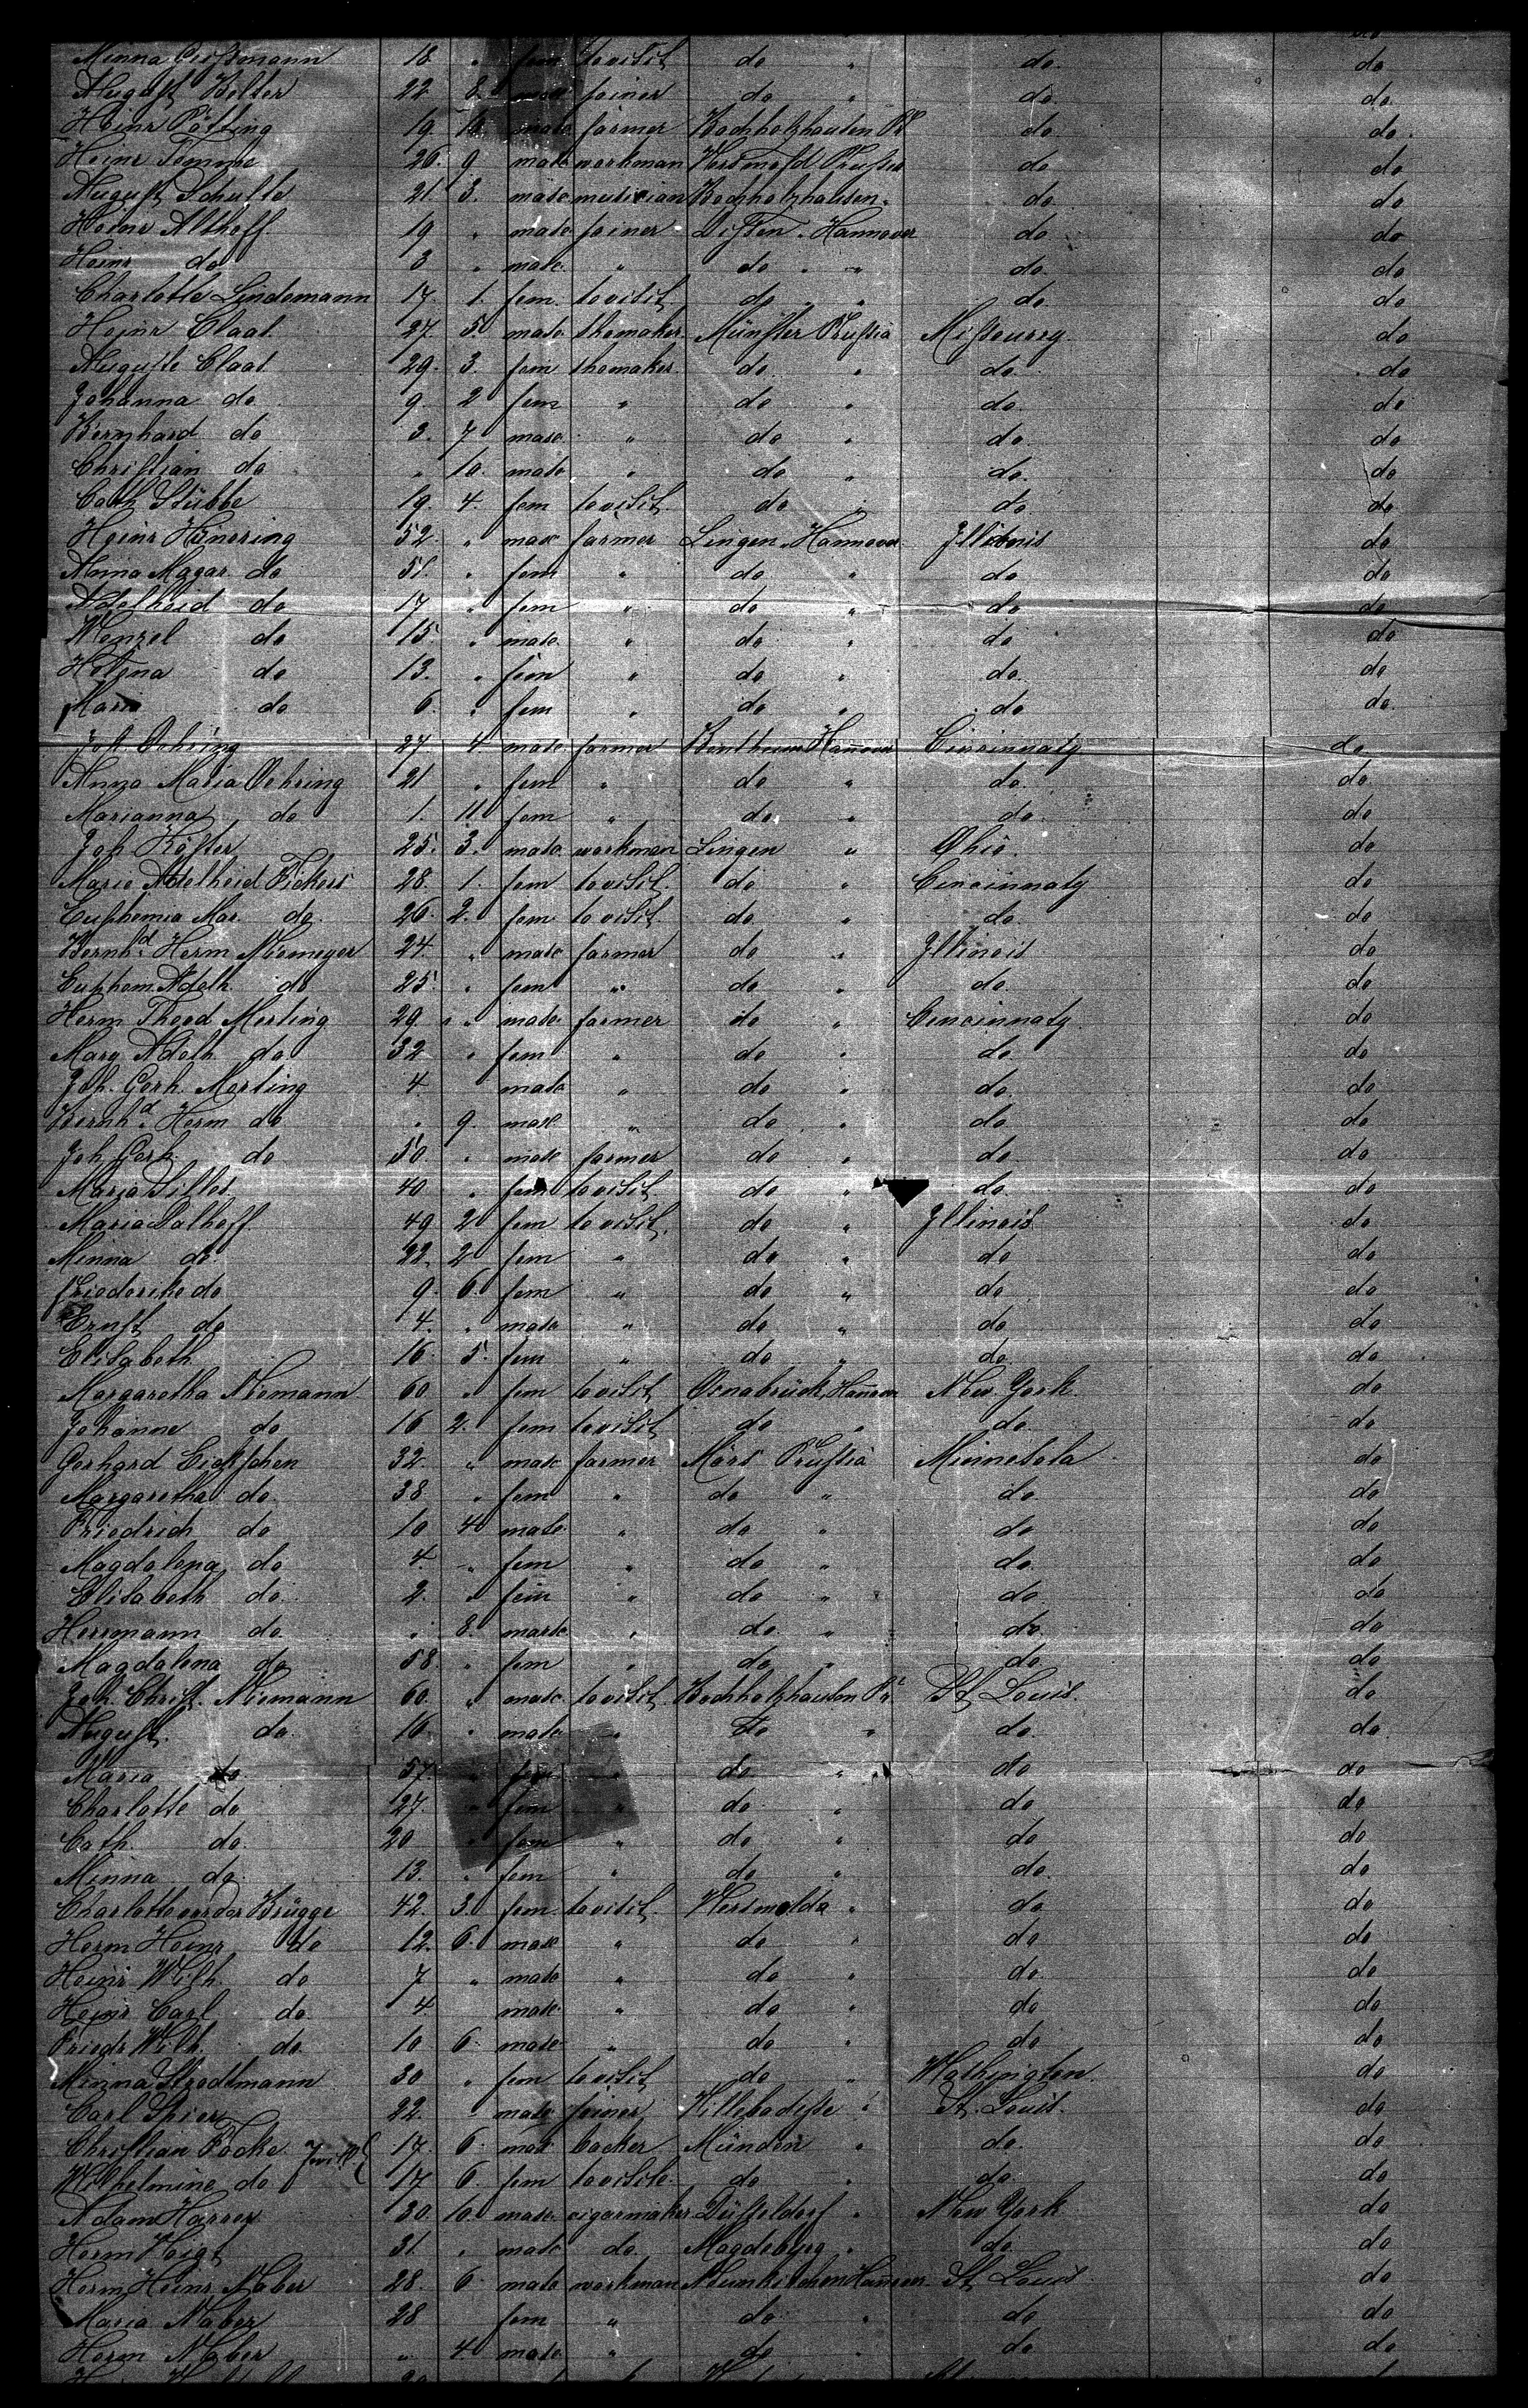 Minna 18 " fem to visit do " do do
August Kolter 22 8 masc joiner do " do do
Heinr Pötting 19 10 masc farmer Bochholzhausen Pr do do
Heinr Temme 26 9 masc workman Versmold Prussia do do
August Schulte 21 3 masc musician Bochholzhausen " do do
Heinr Althoff 19 " masc joiner Dissen Hannover do do
Heinr do 3 " masc " do " do do
Charlotte Lindemann 17 1 fem to visit do " do do
Heinr Claas 27 5 masc shomaker Münster Prussia Missoury do
Auguste Claas 29 3 fem shomaker do " do do
Johanna do 9 2 fem " do " do do
Bernhard do 3 7 masc " do " do do
Christian do " 10 masc " do " do do
Cath Stübbe 19 4 fem to visit do " do do
Heinr Hünering 52 " masc farmer Lingen Hannover Illinois do
Anna Magar. do 51 " fem " do " do do
Adelheid do 17 " fem " do " do do
Wenzel do 15 " masc " do " do do
Helena do 13 " fem " do " do do
Maria do 6 " fem " do " do do
Joh Oehring 27 4 masc farmer Bentheim Hannover Cincinnaty do
Anna Maria Oehring 21 " fem " do " do do
Marianna do 1 11 fem " do " do do
Joh Köster 25 3 masc workman Lingen " Ohio do
Marie Adelheid Fickers 28 1 fem to visit do " Cincinnaty do
Euphemia Mar. do 26 2 fem to visit do " do do
Bernhd Herm Niemeyer 24 " masc farmer do " Illinois do
Euphem. Adelh. do 25 " fem " do " do do
Herm Theod Merting 29 " masc farmer do " Cincinnaty do
Marg Adelh. do 32 " fem " do " do do
Joh. Gerh. Merting 4 masc " do " do do
Bernhd Herm do " 9 masc " do " do do
Joh Gerh. do 50 " masc farmer do " do do
Maria Silles 40 " fem to visit do " do do
Maria Dalhoff 49 2 fem to visit do " Illinois do
Minna do 22 2 fem " do " do do
Friederike do 9 6 fem " do " do do
Ernst do 4 " masc " do " do do
Elisabeth 16 5 fem " do " do do
Margaretha Niemann 60 " fem to visit Osnabrück Hannov New York do
Johanne do 16 2 fem to visit do " do do
Gerhard 32 " masc farmer Mörs Prussia Minnesota do
Margaretha do 38 " fem " do " do do
Friedrich do 10 4 masc " do " do do
Magdalena do 4 " fem " do " do do
Elisabeth do 2 " fem " do " do do
Herrmann do " 8 masc " do " do do
Magdalena do 58 " fem " do " do do
Joh. Christ. Niemann 60 " masc to visit Bochholzhausen Pr St Louis do
August do 16 " masc " do " do do
Maria do 57 " fem " do " do do
Charlotte do 27 " fem " do " do do
Cath. do 20 " fem " do " do do
Minna do 13 " fem " do " do do
Charlotte von der Brügge 42 3 fem to visit Versmolda " do do
Herm Heinr do 12 6 masc " do " do do
Heinr Wilh. do 7 " masc " do " do do
Heinr Carl do 4 masc " do " do do
Friedr Wilh. do 10 6 masc " do " do do
Minna Strodtmann 30 " fem to visit do " Washington do
Carl Spier 22 " masc joiner Willebadesse " St Louis do
Christian Focke 17 6 masc backer Münden " do do
Wilhelmine do 17 6 fem to visite do " do do
Adam Harrey 30 10 masc cigarmaker Düsseldorf " New York do
Herm Voigt 31 " masc do Magdeburg " do do
Herm Heinr Naber 28 6 masc workman Neunkirchen Hannov St Louis do
Maria Naber 28 fem " do " do do
Herm Naber " 4 masc " do " do do